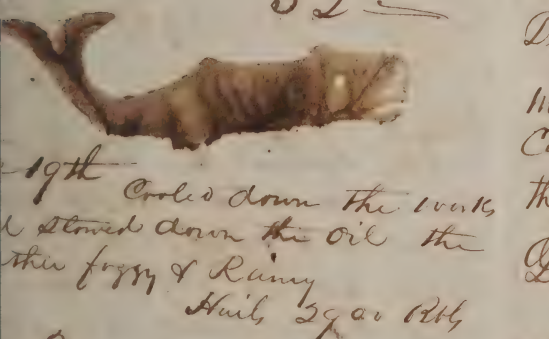 19th Cooled down the works
stowed down the Oil the
foggy & Rainy
Hails